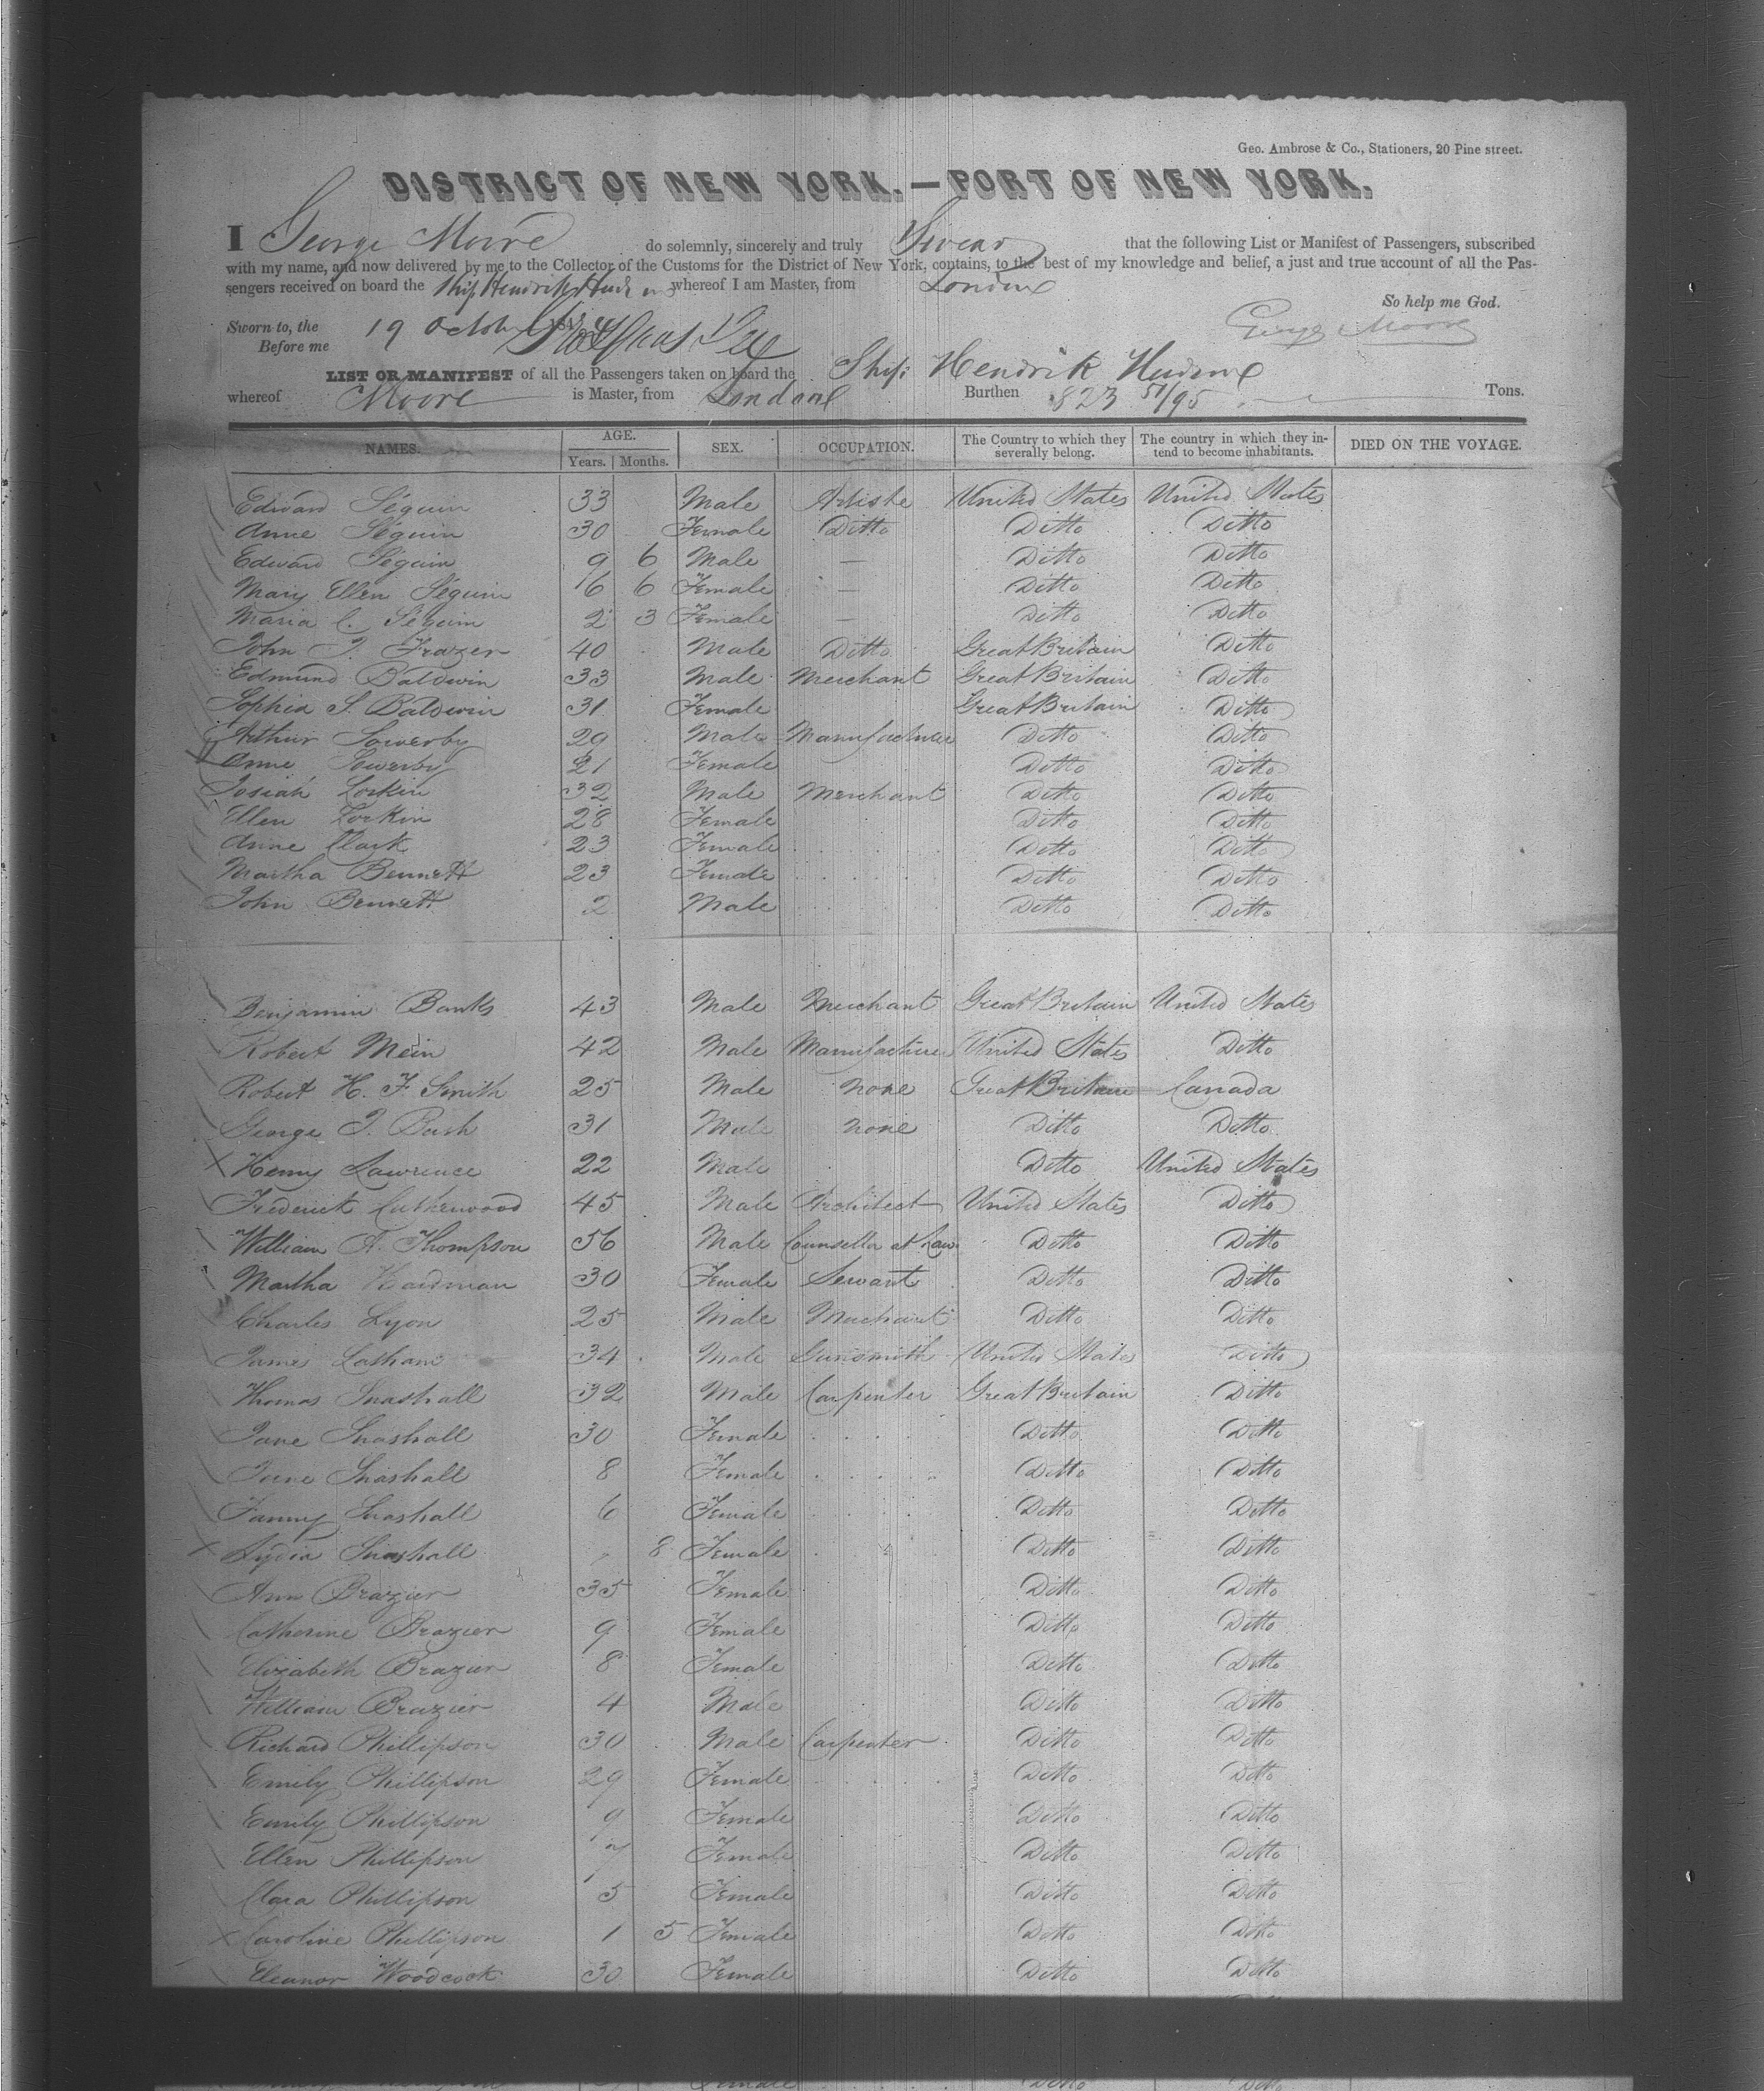 Geo. Ambrose & Co., Stationers, 20 Pine street.
DISTRICT OF NEW YORK.—PORT OF NEW YORK.
I George Moore do solemnly, sincerely and truly Swear that the following List or Manifest of Passengers, subscribed
with my name, and now delivered by me to the Collector of the Customs for the District of New York, contains, to the best of my knowledge and belief, a just and true account of all the Pas-
sengers received on board the Ship Hendrik Hudson whereof I am Master, from London
So help me God.
Sworn to, the 19 October 184
George Moore
Before me
LIST OR MANIFEST of all the Passengers taken on board the Ship Hendrik Hudson
whereof Moore is Master, from London Burthen 823 51/95 Tons.
NAMES. AGE. Years. Months. SEX. OCCUPATION. The Country to which they severally belong. The country in which they intend to become inhabitants. DIED ON THE VOYAGE.
Edward Séguin 33 Male Artiste United States United States
Anne Séguin 30 Female Ditto Ditto Ditto
Edward Séguin 9 6 Male — Ditto Ditto
Mary Ellen Séguin 6 6 Female — Ditto Ditto
Maria C. Séguin 2 3 Female — Ditto Ditto
John T. Frazer 40 Male Ditto Great Britain Ditto
Edmund Baldwin 33 Male Merchant Great Britain Ditto
Sophia S. Baldwin 31 Female Great Britain Ditto
Arthur Sowerby 29 Male Manufacturer Ditto Ditto
Anne Sowerby 21 Female Ditto Ditto
Josiah Lorkin 32 Male Merchant Ditto Ditto
Ellen Lorkin 28 Female Ditto Ditto
Anne Clark 23 Female Ditto Ditto
Martha Bennett 23 Female Ditto Ditto
John Bennett 2 Male Ditto Ditto
Benjamin Banks 43 Male Merchant Great Britain United States
Robert Mein 42 Male Manufacturer United States Ditto
Robert H. F. Smith 25 Male None Great Britain Canada
George T. Bush 31 Male None Ditto Ditto
Henry Lawrence 22 Male Ditto United States
Frederick Catherwood 45 Male Architect United States Ditto
William A. Thompson 56 Male Counsellor at Law Ditto Ditto
Martha Hardman 30 Female Servant Ditto Ditto
Charles Lyon 25 Male Merchant Ditto Ditto
James Latham 34 Male Gunsmith United States Ditto
Thomas Snashall 32 Male Carpenter Great Britain Ditto
Jane Snashall 30 Female Ditto Ditto
Jane Snashall 8 Female Ditto Ditto
Fanny Snashall 6 Female Ditto Ditto
Lydia Snashall 8 Female Ditto Ditto
Ann Brazier 35 Female Ditto Ditto
Catherine Brazier 9 Female Ditto Ditto
Elizabeth Brazier 8 Female Ditto Ditto
William Brazier 4 Male Ditto Ditto
Richard Phillipson 30 Male Carpenter Ditto Ditto
Emily Phillipson 29 Female Ditto Ditto
Emily Phillipson 9 Female Ditto Ditto
Ellen Phillipson 7 Female Ditto Ditto
Clara Phillipson 5 Female Ditto Ditto
Caroline Phillipson 1 5 Female Ditto Ditto
Eleanor Woodcock 30 Female Ditto Ditto